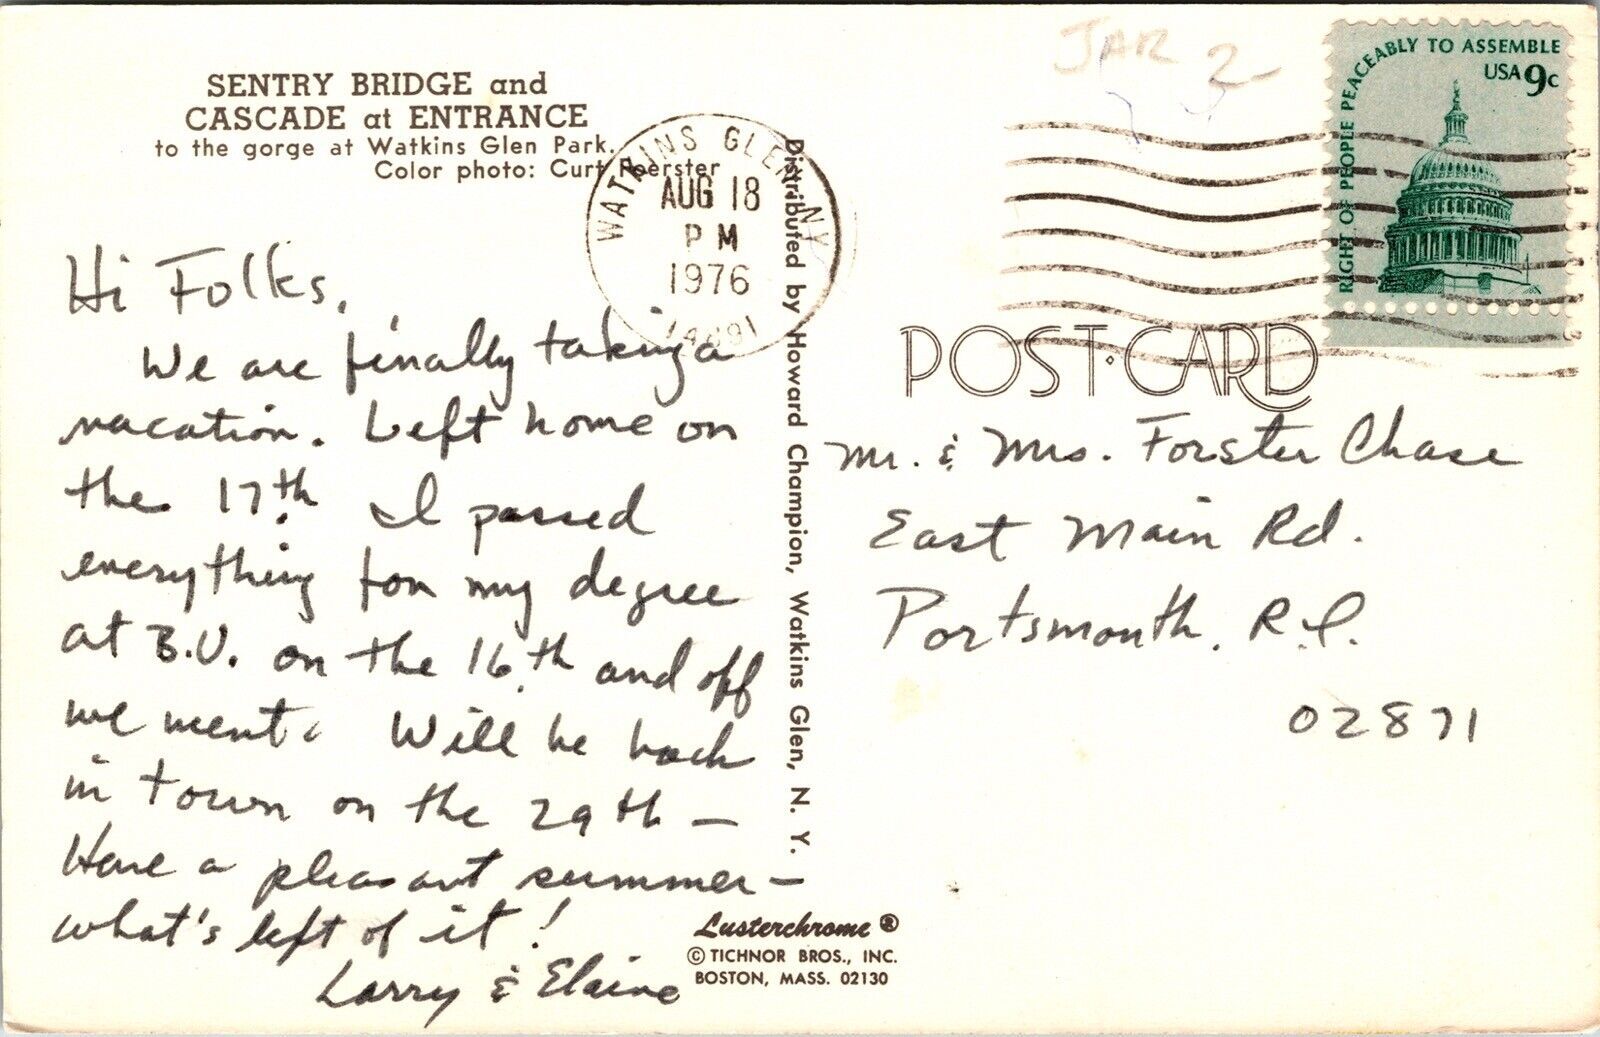 SENTRY BRIDGE and
CASCADE at ENTRANCE
to the gorge at Watkins Glen Park.
Color photo: Curt Foerster
Hi Folks,
We are finally taking a
vacation. Left home on
the 17th. I passed
everything for my degree
at B.U. on the 16th and off
we went. Will be back
in town on the 29th –
Have a pleasant summer –
what's left of it!
Larry & Elaine
WATKINS GLEN NY
AUG 18
PM
1976
14891
Distributed by Howard Champion, Watkins Glen, N. Y.
Lusterchrome®
© TICHNOR BROS., INC.
BOSTON, MASS. 02130
JAR 2-
RIGHT OF PEOPLE PEACEABLY TO ASSEMBLE
USA 9c
POST·CARD
Mr. & Mrs. Forster Chase
East Main Rd.
Portsmouth, R.I.
02871